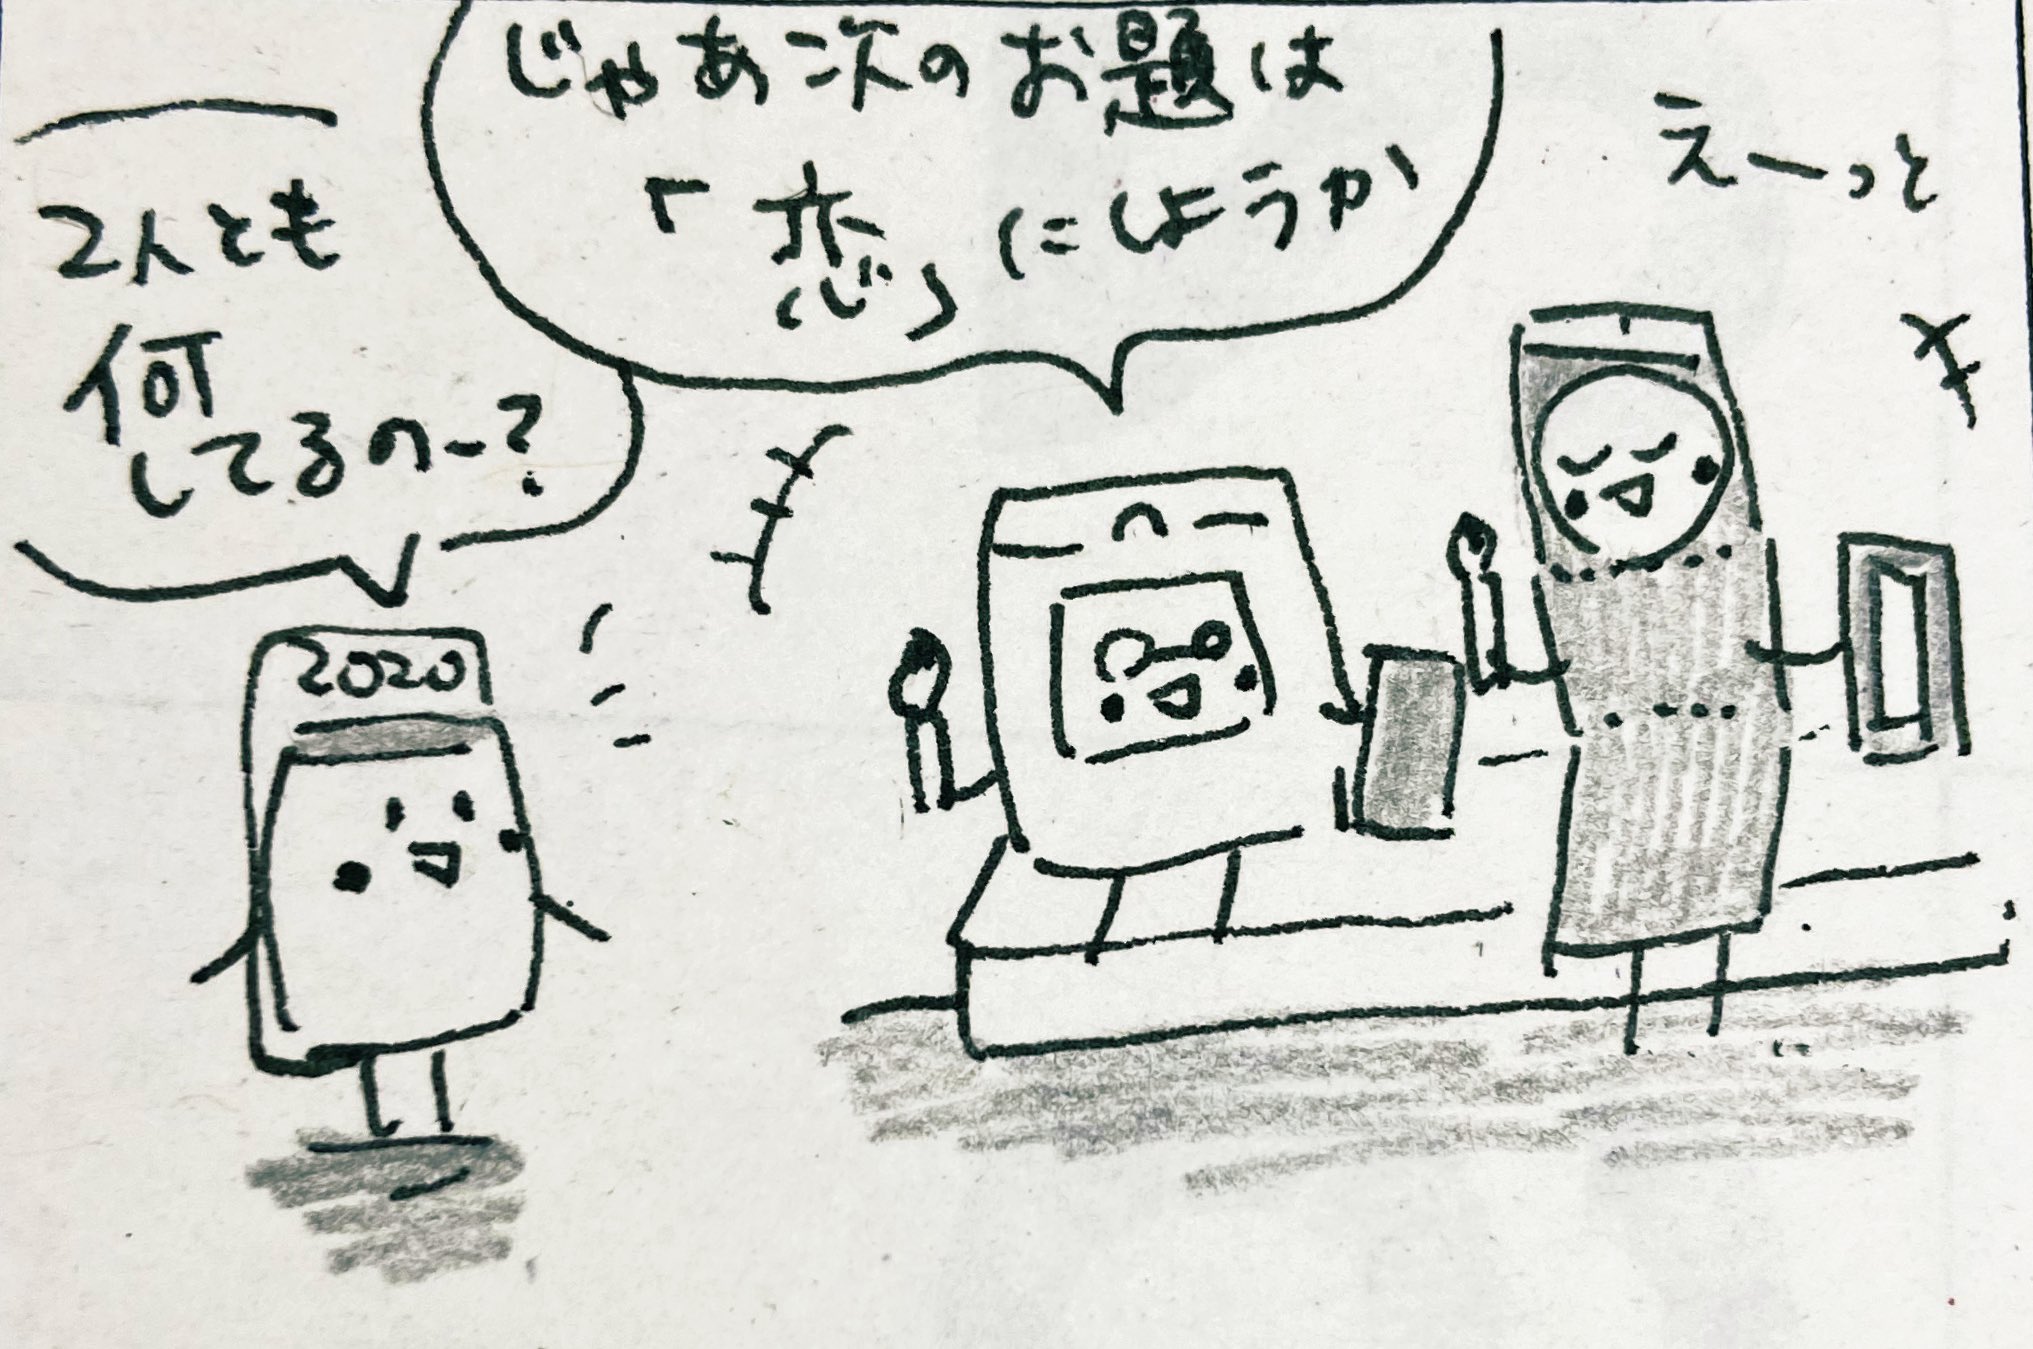 2人とも
何
してるのー?
じゃあ次のお題は
「恋」にしようか
えーっと
2020